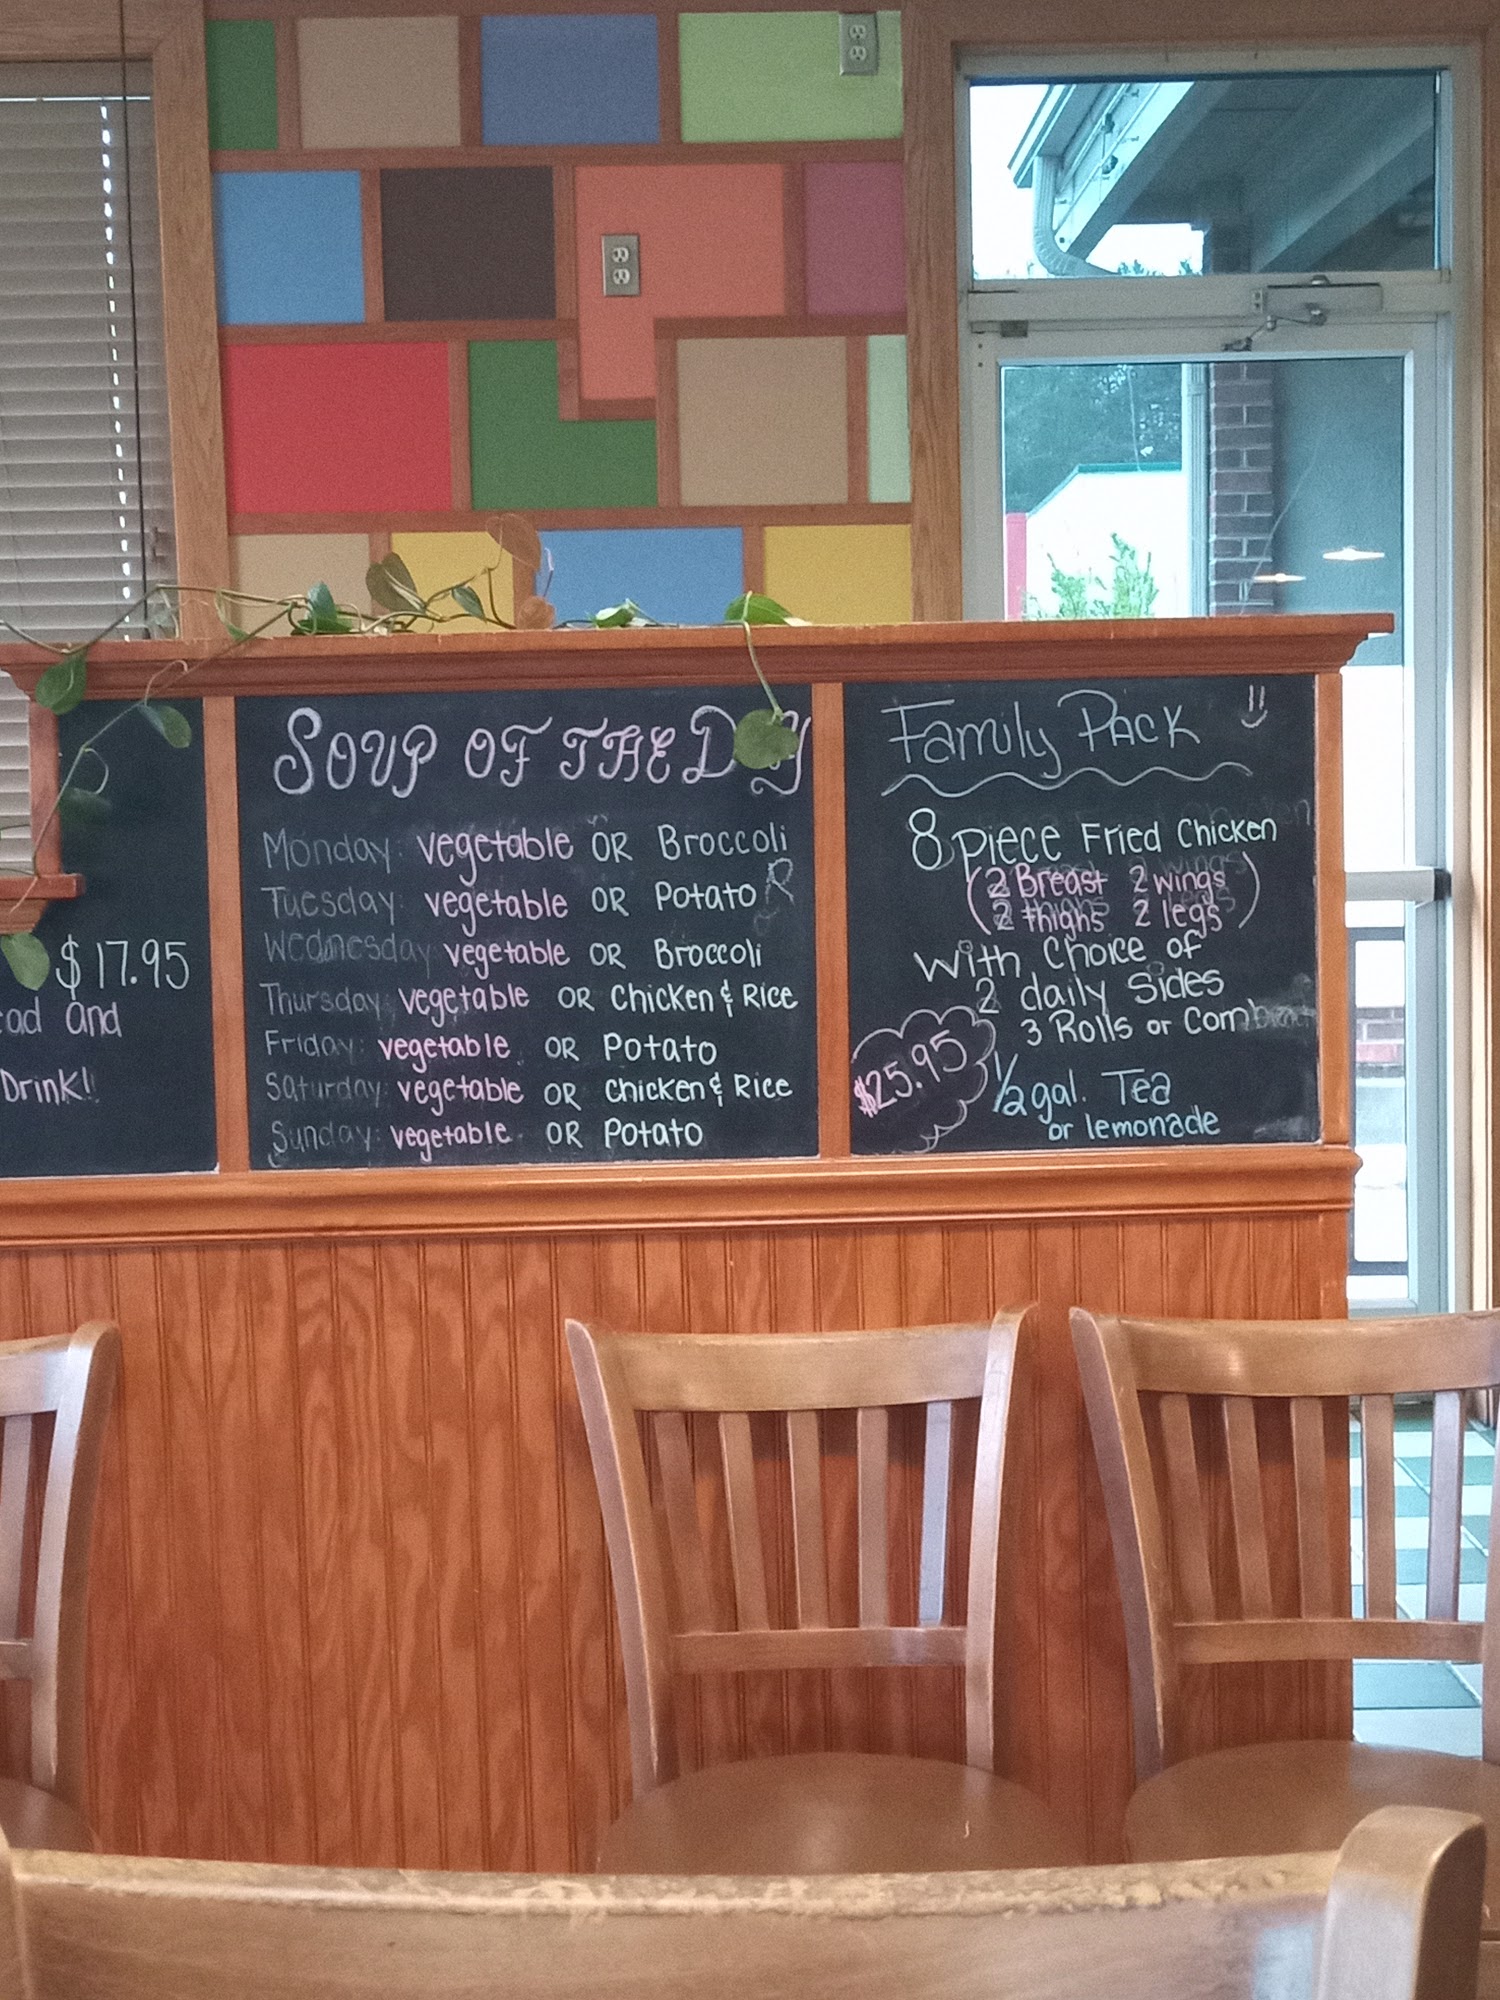 $17.95
ead and
Drink!!
SOUP OF THE DAY
Monday: vegetable OR Broccoli
Tuesday: vegetable OR Potato
Wednesday vegetable OR Broccoli
Thursday: vegetable OR Chicken & Rice
Friday: vegetable OR Potato
Saturday: vegetable OR Chicken & Rice
Sunday: vegetable OR Potato
Family Pack
8 Piece Fried Chicken
(2 Breast 2 wings
2 thighs 2 legs)
With Choice of
2 daily Sides
3 Rolls or Cornbread
$25.95
1/2 gal. Tea
or lemonade